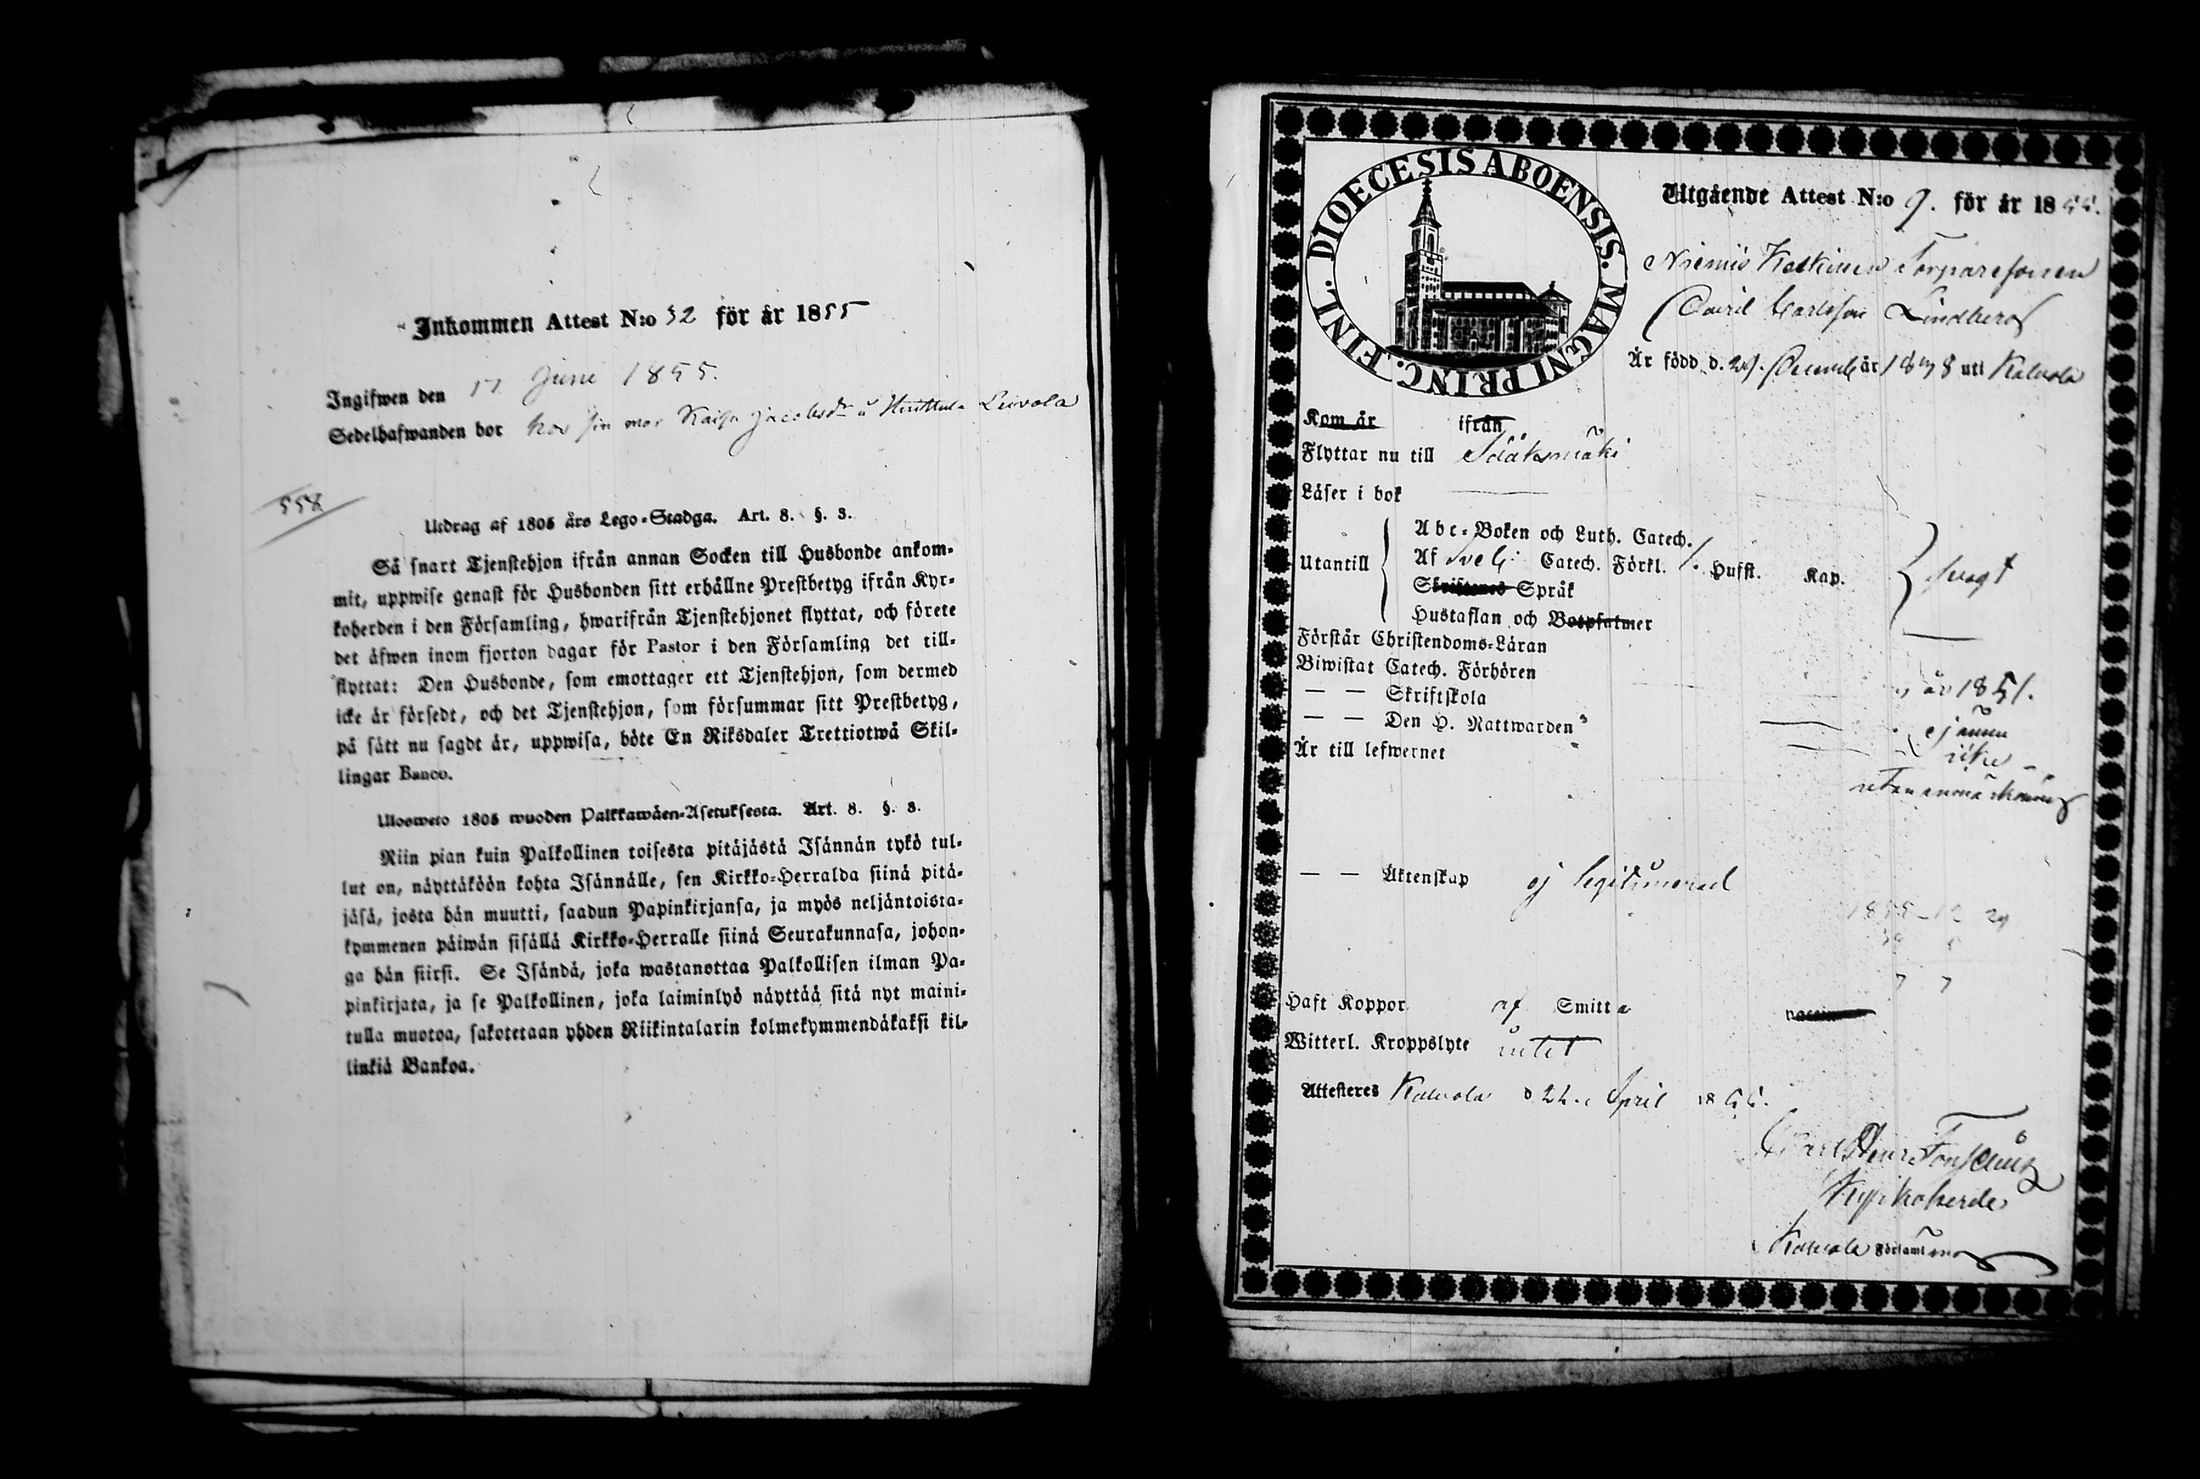 Inkommen Attest N:o 32 för år 1855
Ingifwen den 17 Juni 1855.
Sedelhafwanden bor hos sin mor Kaisa Jacobsdr å Huttula Leivola
558
Utdrag af 1805 års Lego-Stadga. Art. 8. §. 3.
Så snart Tjenstehjon ifrån annan Socken till Husbonde ankom-
mit, uppwise genast för Husbonden sitt erhållne Prestbetyg ifrån Kyr-
koherden i den Församling, hwarifrån Tjenstehjonet flyttat, och förete
det äfwen inom fjorton dagar för Pastor i den Församling det till-
flyttat: Den Husbonde, som emottager ett Tjenstehjon, som dermed
icke är försedt, och det Tjenstehjon, som försummar sitt Prestbetyg,
på sätt nu sagdt är, uppwisa, böte En Riksdaler Trettiotwå Skil-
lingar Banco.
Ulosweto 1805 wuoden Palkkawäen-Asetuksesta. Art. 8. §. 3.
Niin pian kuin Palkollinen toisesta pitäjästä Isännän tykö tul-
lut on, näyttäköön kohta Isännälle, sen Kirkko-Herralda siinä pitä-
jäsä, josta hän muutti, saadun Papinkirjansa, ja myös neljäntoista-
kymmenen päiwän sisällä Kirkko-Herralle siinä Seurakunnasa, johon-
ga hän siirsi. Se Isändä, joka wastanottaa Palkollisen ilman Pa-
pinkirjata, ja se Palkollinen, joka laiminlyö näyttää sitä nyt maini-
tulla muotoa, sakotetaan yhden Riikintalarin kolmekymmendäkaksi kil-
linkiä Bankoa.
DIOECESIS ABOENSIS. MAGNI PRINC. FINL.
Utgående Attest N:o 9. för år 1855.
Niemis Kotkinen Torparesonen
Carl Carlsson Lindberg
Är född d. 29. Decemb år 1838 uti Kalvola
Kom år ifrån
Flyttar nu till Sääksmäki
Läser i bok
Utantill
Abc-Boken och Luth. Catech.
Af Sveb: Catech. Förkl. Husst. Kap. svagt
Skriftenes Språk
Hustaflan och Botpsalmer
Förstår Christendoms-Läran
Biwistat Catech. Förhören år 1851.
— — Skriftskola ej ännu
— — Den H. Nattwarden icke
Är till lefwernet utan anmärkning
— — Äktenskap ej legitimerad
1855-12 29
7 7
Haft Koppor af Smitta
Witterl. Kroppslyte intet
Attesteres Kalvola d 22. April 1855.
Carl Henr Fonselius
Kyrkoherde
Kalvola Församling